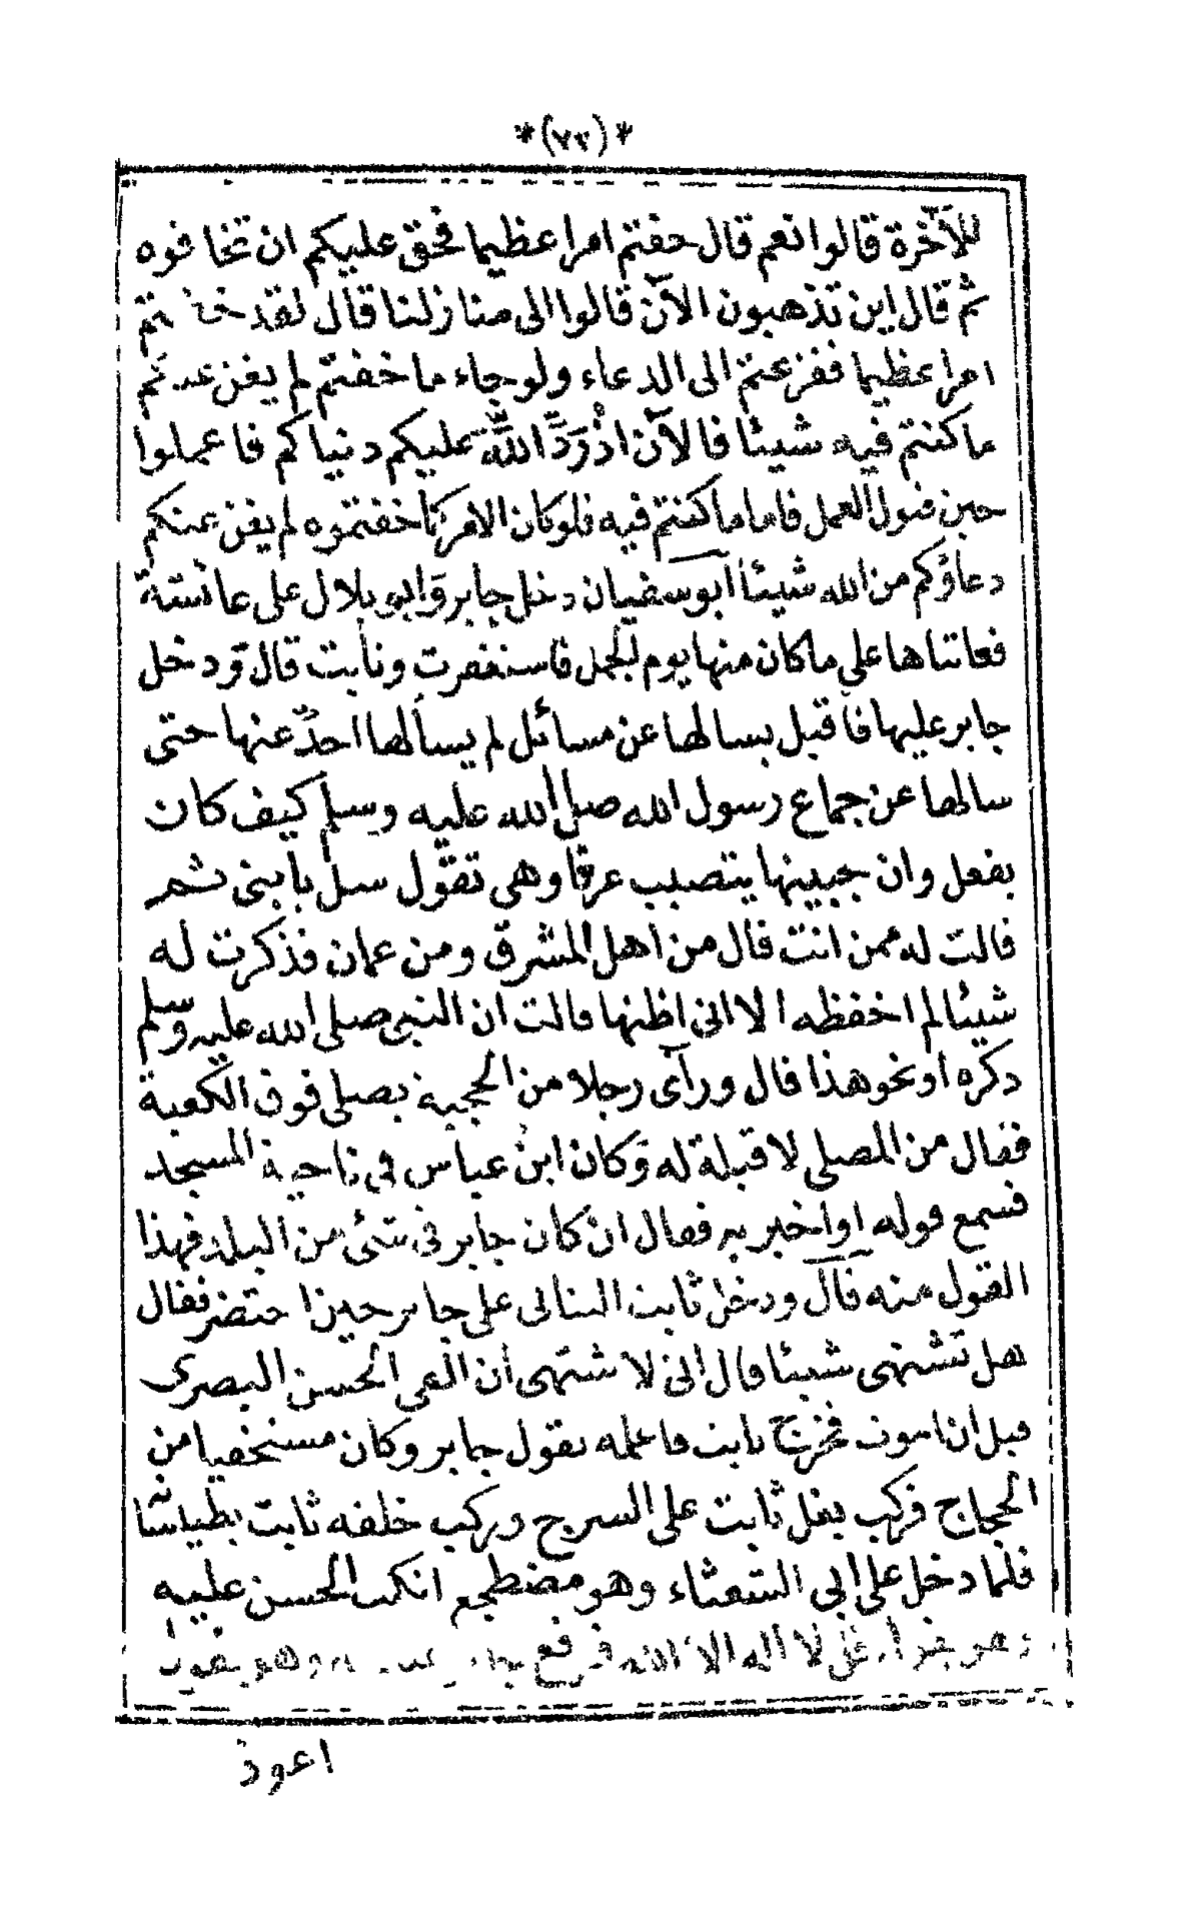 *(٧٣)*
للآخرة قالوا نعم قال خفتم امرا عظيما فحق عليكم ان تخافوه
ثم قال اين تذهبون الآن قالوا الى منازلنا قال لقد خفتم
امرا عظيما ففزعتم الى الدعاء ولو جاء ما خفتم لم يغن عنكم
ما كنتم فيه شيئا فالآن اذ رَدَّ اللّه عليكم دنياكم فاعملوا
حين قبول العمل فاما ما كنتم فيه فلو كان الامر كما خفتموه لم يغن عنكم
دعاؤكم من الله شيئا ابو سفيان دخل جابر وابو بلال على عائشة
فعاتباها على ما كان منها يوم الجمل فاستغفرت وتابت قال ودخل
جابر عليها فأقبل يسالها عن مسائل لم يسألها احدٌ عنها حتى
سالها عن جماع رسول الله صلى الله عليه وسلم كيف كان
يفعل وان جبينها يتصبب عرقا وهى تقول سل يا بنى ثم
قالت له ممن انت قال من اهل المشرق ومن عمان فذكرت له
شيئا لم احفظه الا انى اظنها قالت ان النبى صلى الله عليه وسلم
ذكره او نحو هذا قال ورآى رجلا من الحجبة يصلى فوق الكعبة
فقال من المصلى لا قبلة له وكان ابن عباس فى ناحية المسجد
فسمع قوله او اخبر به فقال ان كان جابر فى شئ من البلد فهذا
القول منه قال ودخل ثابت البنانى على جابر حين احتضر فقال
هل تشتهى شيئا قال انى لاشتهى ان القى الحسن البصرى
قبل ان اموت فخرج ثابت فاعلمه بقول جابر وكان مستخفيا من
الحجاج فركب بغل ثابت على السرج وركب خلفه ثابت بطيلسانه
فلما دخل على ابى الشعثاء وهو مضطجع انكب الحسن عليه
وهو يقول قل لا اله الا الله فرفع وهو يقول
اعوذ